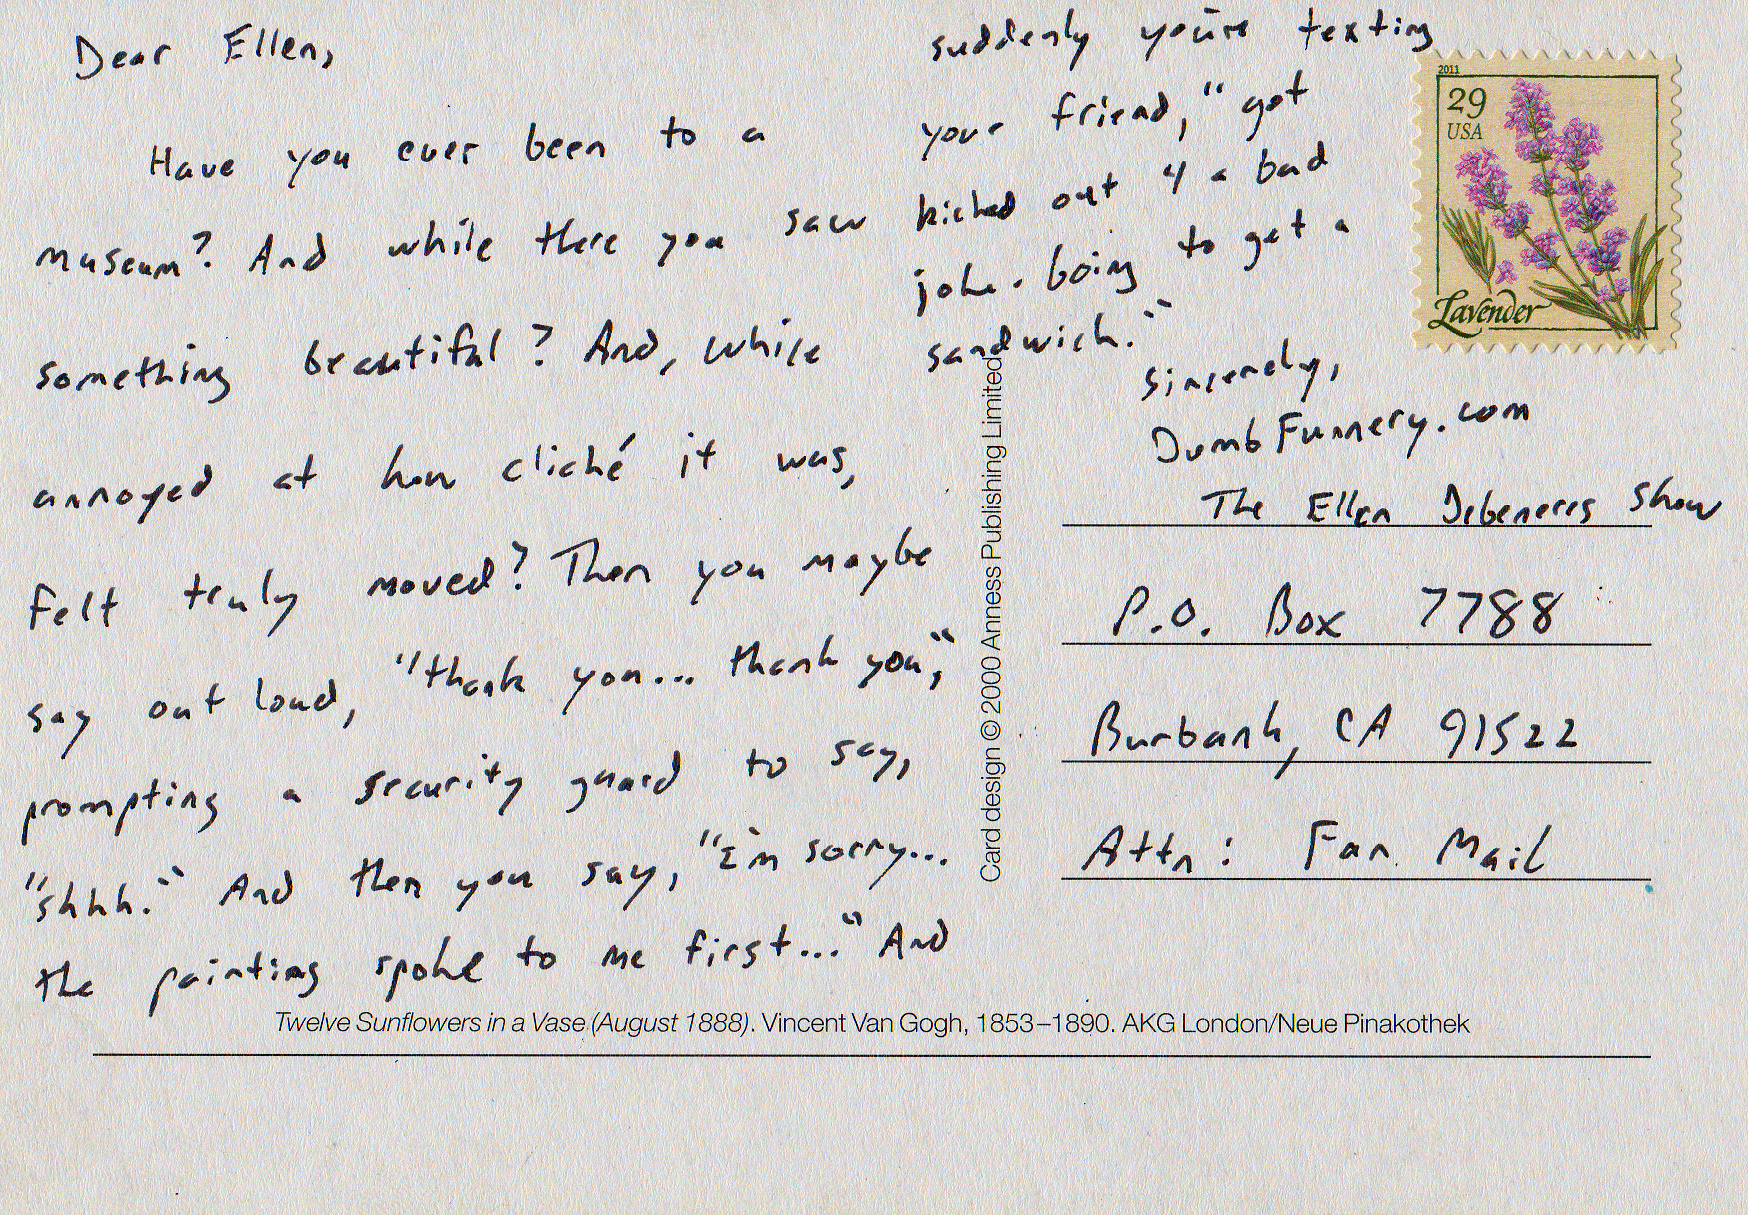 Dear Ellen,
Have you ever been to a
museum? And while there you saw
something beautiful? And, while
annoyed at how cliché it was,
felt truly moved? Then you maybe
say out loud, "thank you... thank you,"
prompting a security guard to say,
"shhh." And then you say, "I'm sorry...
the painting spoke to me first..." And
suddenly you're texting
your friend, "got
kicked out 4 a bad
joke. Going to get a
sandwich."
Sincerely,
DumbFunnery.com
2011
29
USA
Lavender
The Ellen Degeneres Show
P.O. Box 7788
Burbank, CA 91522
Attn: Fan Mail
Card design © 2000 Anness Publishing Limited
Twelve Sunflowers in a Vase (August 1888). Vincent Van Gogh, 1853–1890. AKG London/Neue Pinakothek